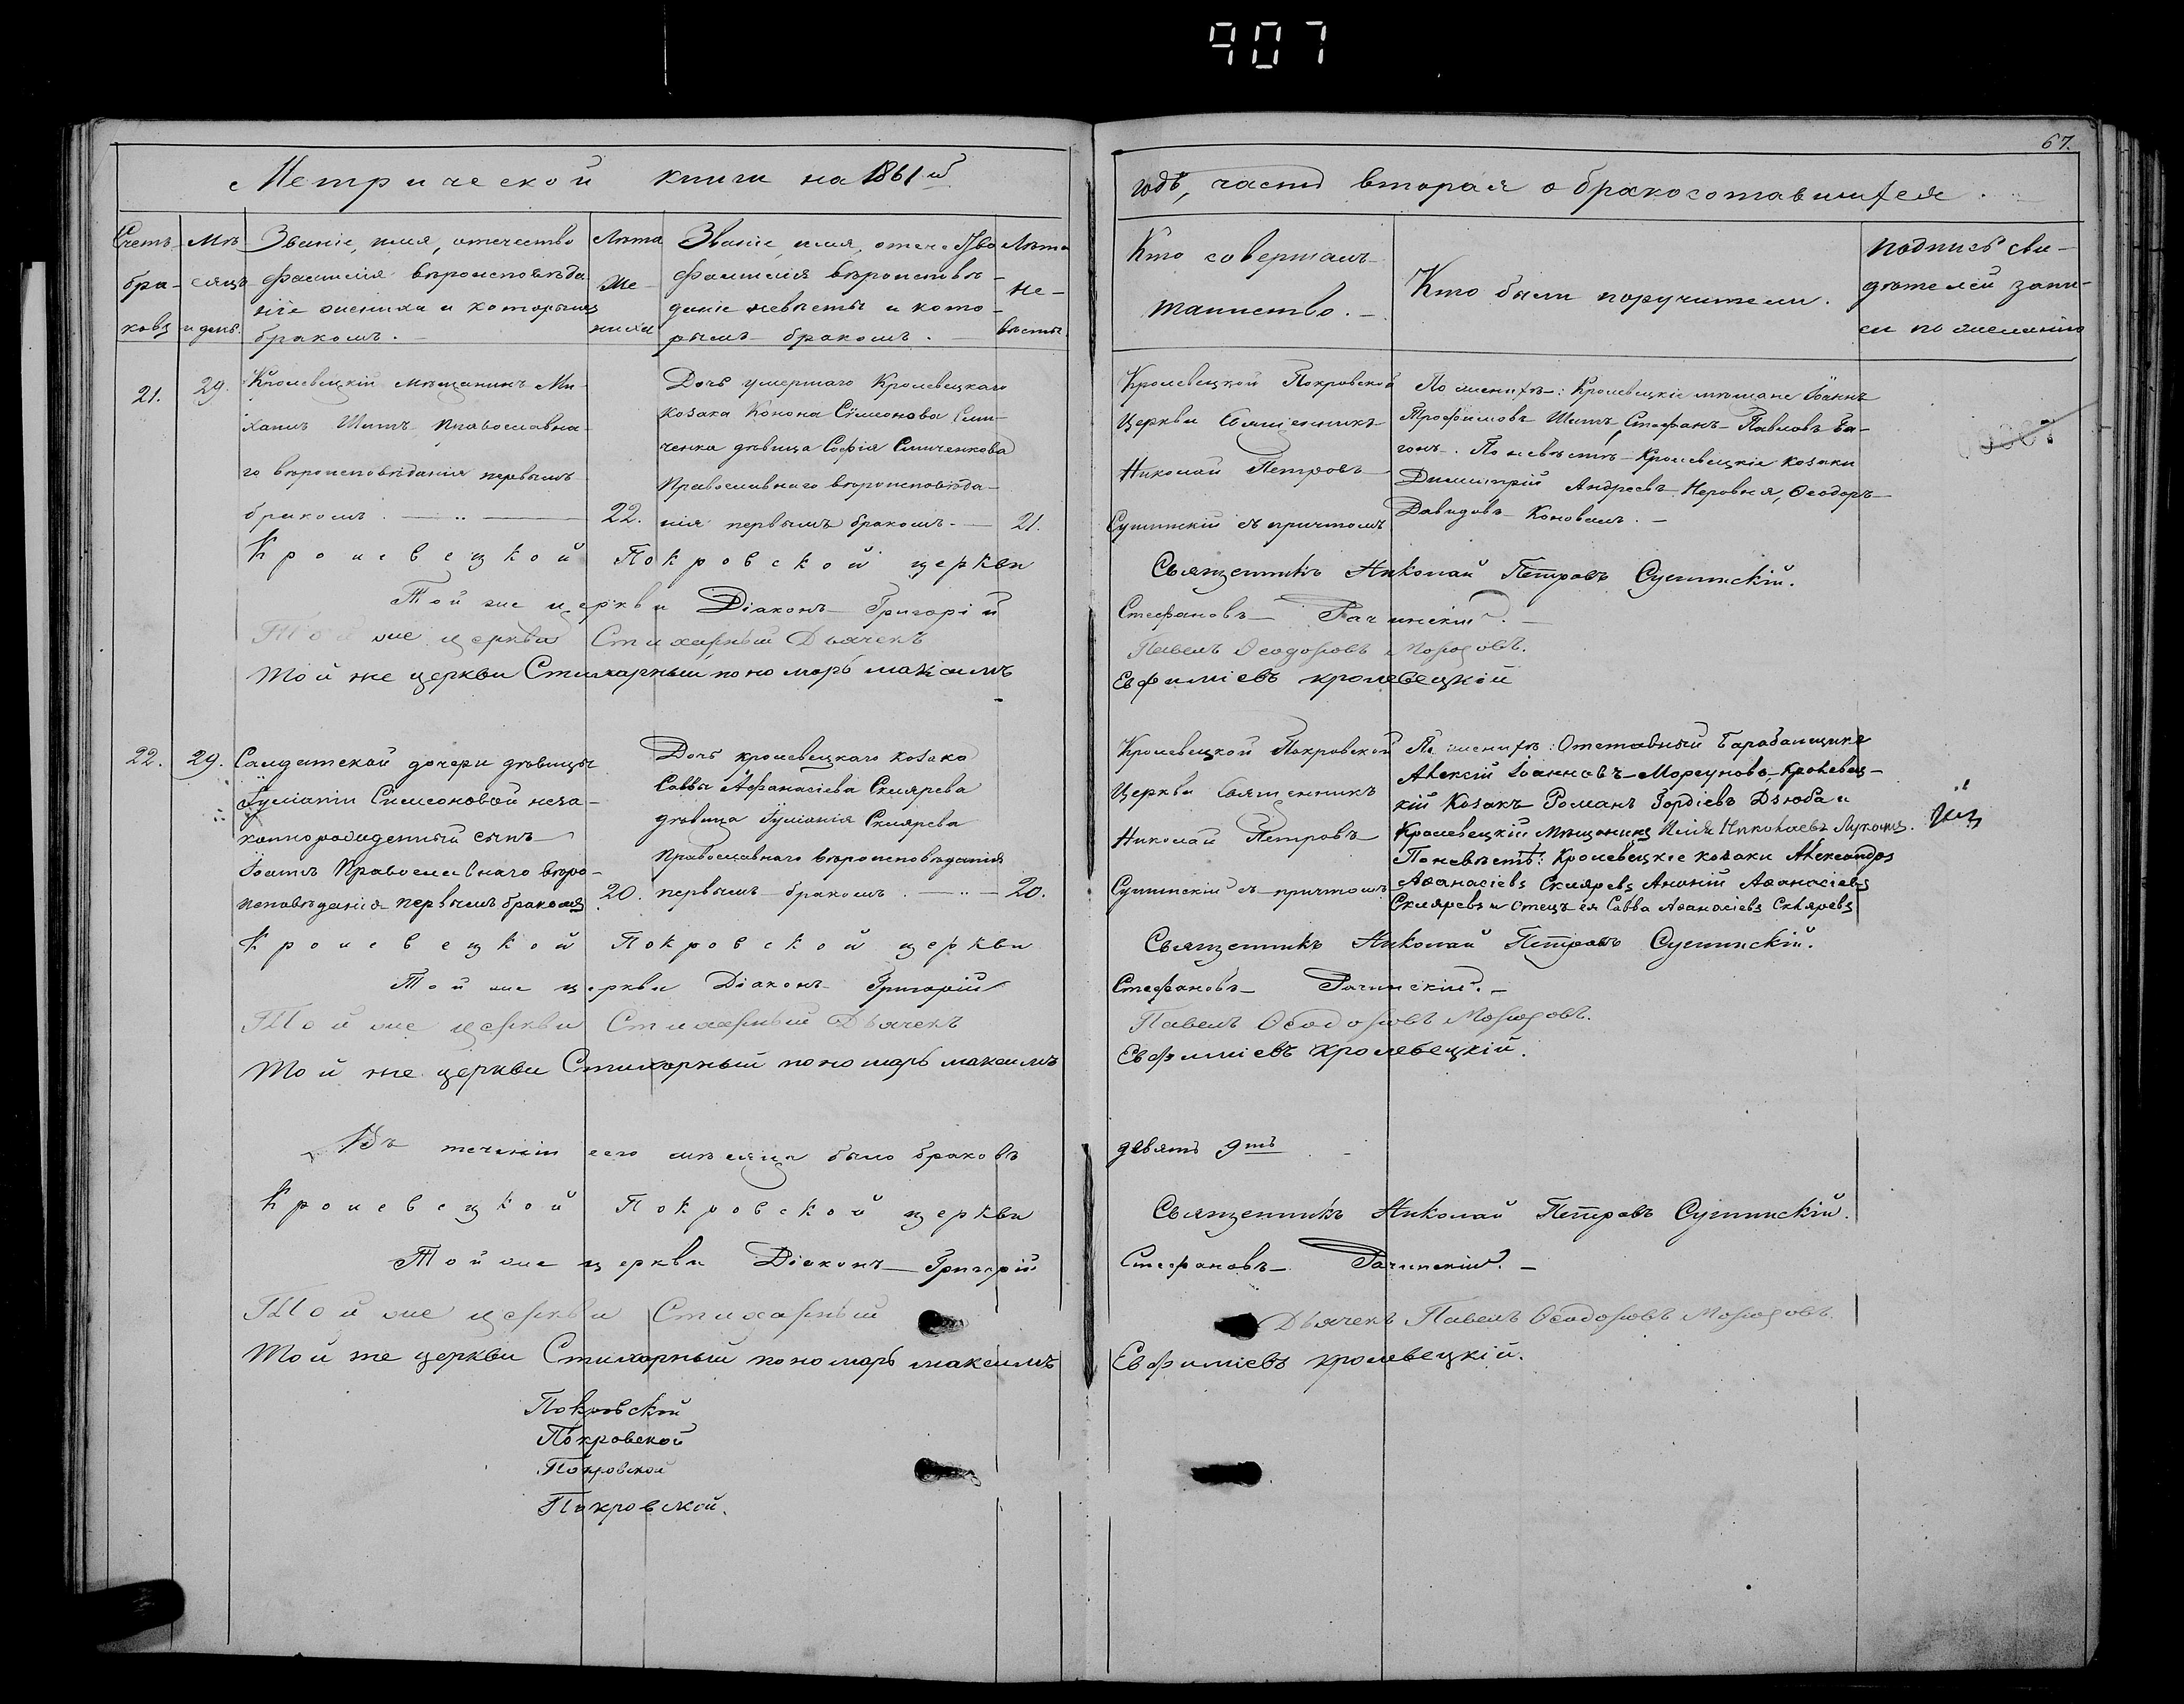 907
67.
Метрической книги на 1861й
годъ, часть вторая о бракосочетавшихся.
Счетъ браковъ
Мѣсяцъ и день.
Званіе, имя, отечество
фамилія вѣроисповѣда
ніе жениха и которымъ
бракомъ.
Лѣта жениха
Званіе, имя, отечество
фамилія вѣроисповѣ-
даніе невѣсты и кото-
рымъ бракомъ.
Лѣта невѣсты.
Кто совершалъ
таинство.
Кто были поручители.
подпись сви-
дѣтелей запи-
си по желанію
21.
29.
Кролевецкій мѣщанинъ Ми-
хаилъ Шитъ Православна-
го вѣроисповѣданія первымъ
бракомъ.
22.
Дочь умершаго Кролевецкаго
козака Конона Сѵмеонова
ченка дѣвица Софія
Православнаго вѣроисповѣда-
нія первымъ бракомъ.
21.
Кролевецкой Покровской
Церкви Священникъ
Николай Петровъ
съ причтомъ
По женихѣ: Кролевецкіе мѣщане Іоаннъ
Трофимовъ Шитъ, Стефанъ Павловъ
По невѣстѣ Кролевецкіе козаки
Димитрій Андреевъ Неровня, Ѳеодоръ
Давидовъ Коновалъ.
Кролевецкой Покровской церкви
Священникъ Николай Петровъ
Той же церкви Діаконъ Григорій
Стефановъ
Той же церкви Стихарный Дьячекъ
Павелъ Ѳеодоровъ
Той же церкви Стихарный пономарь Максимъ
Евфиміевъ Кролевецкій
22.
29.
Салдатской дочери дѣвицы
Іуліаніи Сѵмеоновой неза-
коннорожденный сынъ
Іоаннъ Православнаго вѣро-
исповѣданія первымъ бракомъ
20.
Дочь кролевецкаго козака
Саввы Аѳанасіева Склярева
дѣвица Іуліанія Склярева
Православнаго вѣроисповѣданія
первымъ бракомъ.
20.
Кролевецкой Покровской
Церкви Священникъ
Николай Петровъ
съ причтомъ
По женихѣ: Отставный Барабанщикъ
Алексій Іоанновъ Моргуновъ, Кролевец-
кій Козакъ Романъ Гордіевъ Дзюба и
Кролевецкій Мѣщанинъ Илія Николаевъ
По невѣстѣ: Кролевецкіе козаки Александръ
Аѳанасіевъ Скляревъ Ананій Аѳанасіевъ
Скляревъ и отецъ ея Савва Аѳанасіевъ Скляревъ
Кролевецкой Покровской церкви
Священникъ Николай Петровъ
Той же церкви Діаконъ Григорій
Стефановъ
Той же церкви Стихарный Дьячекъ
Павелъ Ѳеодоровъ
Той же церкви Стихарный пономарь Максимъ
Евфиміевъ Кролевецкій.
Въ теченіи сего мѣсяца было браковъ
девять 9ть
Кролевецкой Покровской церкви
Священникъ Николай Петровъ
Той же церкви Діаконъ Григорій
Стефановъ
Той же церкви Стихарный
Дьячекъ Павелъ Ѳеодоровъ
Той же церкви Стихарный пономарь Максимъ
Евфиміевъ Кролевецкій.
Покровской
Покровской
Покровской
Покровской.